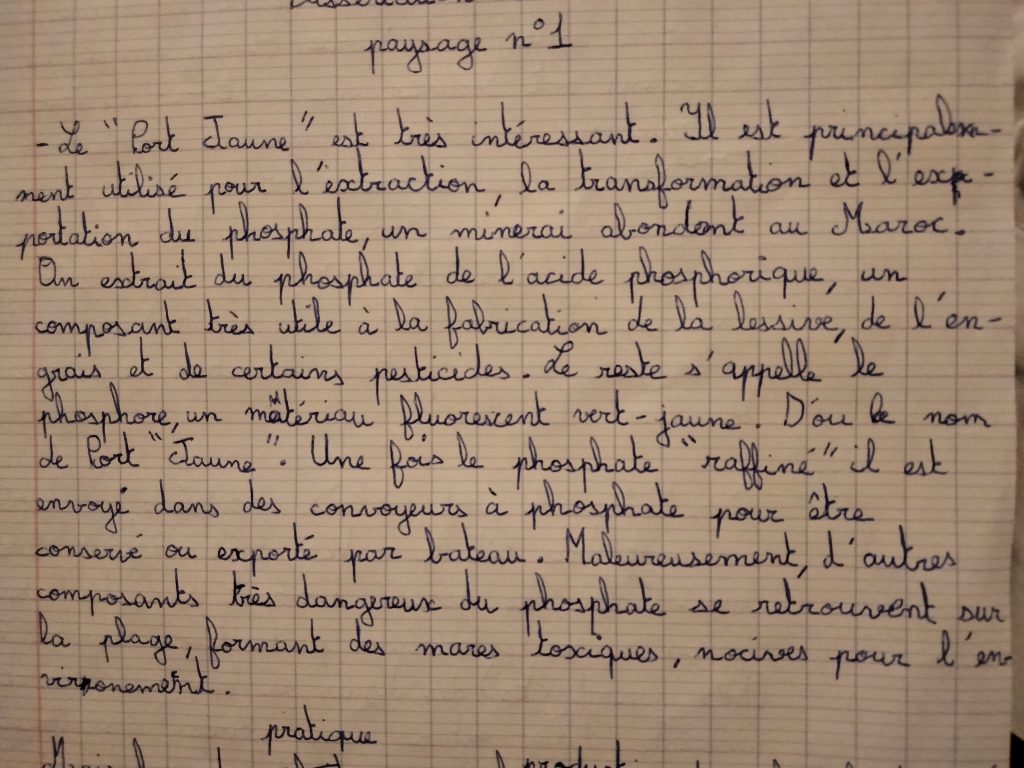 Dissertation
paysage n°1
- Le "Port Jaune" est très intéressant. Il est principalem-
ment utilisé pour l'éxtraction, la transformation et l'exp-
portation du phosphate, un minérai abondant au Maroc.
On extrait du phosphate de l'acide phosphorique, un
composant très utile à la fabrication de la lessive, de l'en-
grais et de certains pesticides. Le reste s'appellé le
phosphore, un matériau fluorescent vert-jaune. D'óu le nom
de Port "Jaune". Une fois le phosphate "raffiné" il est
envoyé dans des convoyeurs à phosphate pour être
conservé ou exporté par bateau. Maleureusement, d'autres
composants très dangereux du phosphate se retrouvent sur
la plage, formant des mares toxiques, nocives pour l'en-
vironement.
pratique